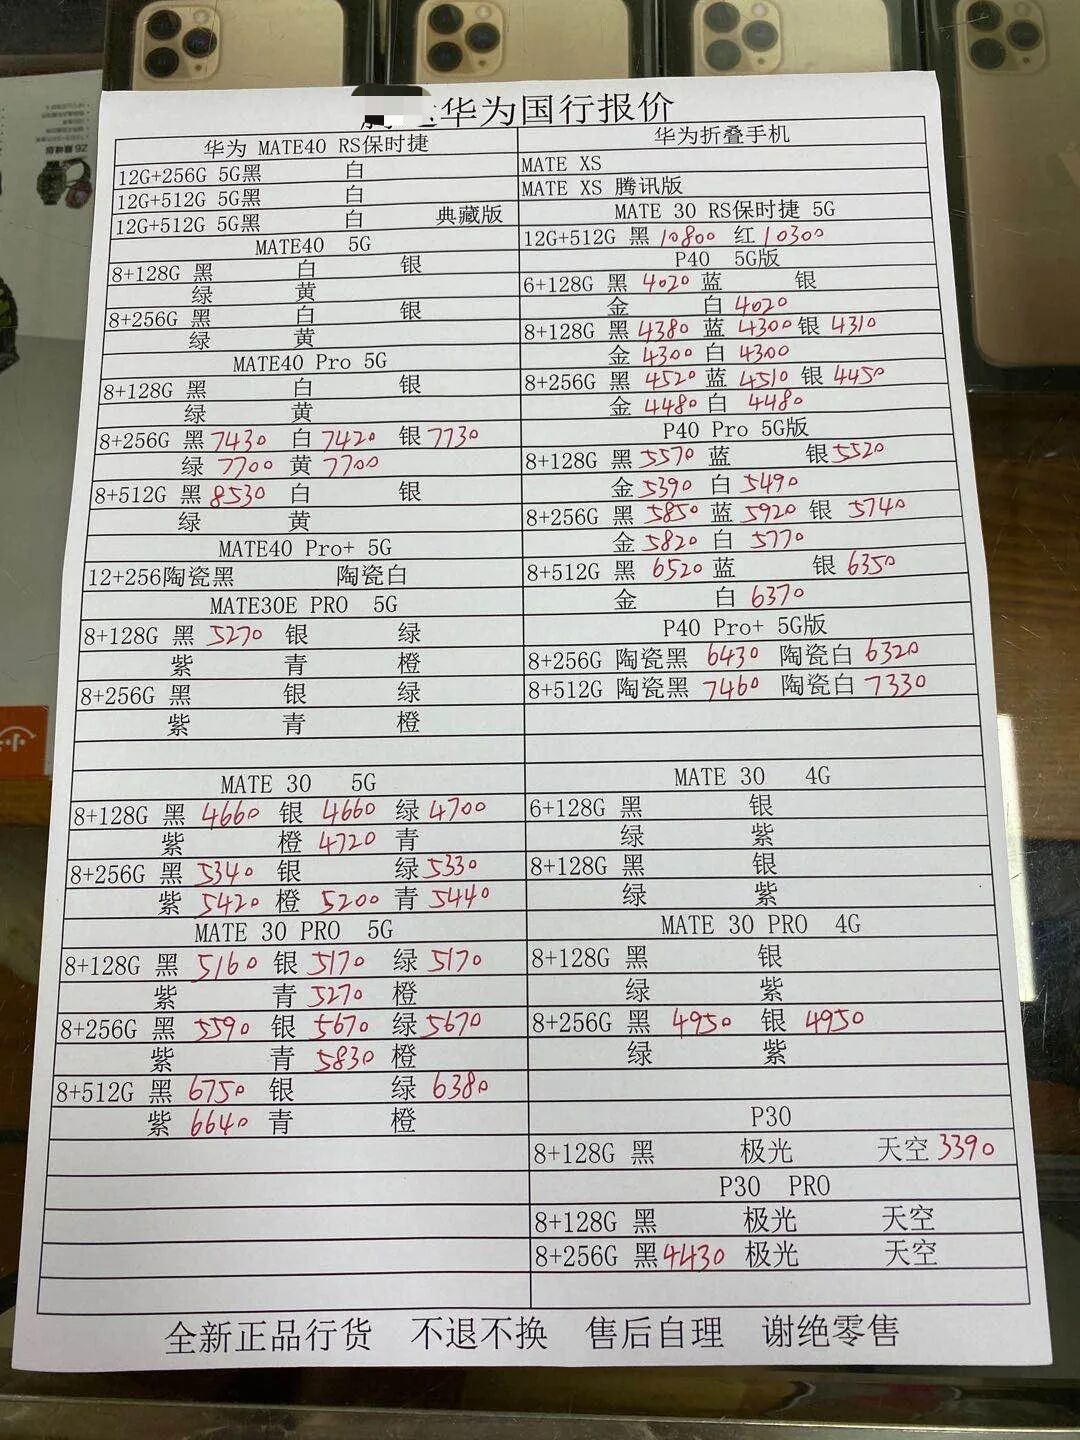 华为国行报价
华为 MATE40 RS保时捷
12G+256G 5G黑 白
12G+512G 5G黑 白
12G+512G 5G黑 白 典藏版
MATE40 5G
8+128G 黑 白 银
绿 黄
8+256G 黑 白 银
绿 黄
MATE40 Pro 5G
8+128G 黑 白 银
绿 黄
8+256G 黑 7430 白 7420 银 7730
绿 7700 黄 7700
8+512G 黑 8530 白 银
绿 黄
MATE40 Pro+ 5G
12+256陶瓷黑 陶瓷白
MATE30E PRO 5G
8+128G 黑 5270 银 绿
紫 青 橙
8+256G 黑 银 绿
紫 青 橙
MATE 30 5G
8+128G 黑 4660 银 4660 绿 4700
紫 橙 4720 青
8+256G 黑 5340 银 绿 5330
紫 5420 橙 5200 青 5440
MATE 30 PRO 5G
8+128G 黑 5160 银 5170 绿 5170
紫 青 5270 橙
8+256G 黑 5590 银 5670 绿 5670
紫 青 5830 橙
8+512G 黑 6750 银 绿 6380
紫 6640 青 橙
华为折叠手机
MATE XS
MATE XS 腾讯版
MATE 30 RS保时捷 5G
12G+512G 黑 10800 红 10300
P40 5G版
6+128G 黑 4020 蓝 银
金 白 4020
8+128G 黑 4380 蓝 4300 银 4310
金 4300 白 4300
8+256G 黑 4520 蓝 4510 银 4450
金 4480 白 4480
P40 Pro 5G版
8+128G 黑 5570 蓝 银 5520
金 5390 白 5490
8+256G 黑 5850 蓝 5920 银 5740
金 5820 白 5770
8+512G 黑 6520 蓝 银 6350
金 白 6370
P40 Pro+ 5G版
8+256G 陶瓷黑 6430 陶瓷白 6320
8+512G 陶瓷黑 7460 陶瓷白 7330
MATE 30 4G
6+128G 黑 银
绿 紫
8+128G 黑 银
绿 紫
MATE 30 PRO 4G
8+128G 黑 银
绿 紫
8+256G 黑 4950 银 4950
绿 紫
P30
8+128G 黑 极光 天空 3390
P30 PRO
8+128G 黑 极光 天空
8+256G 黑 4430 极光 天空
全新正品行货 不退不换 售后自理 谢绝零售